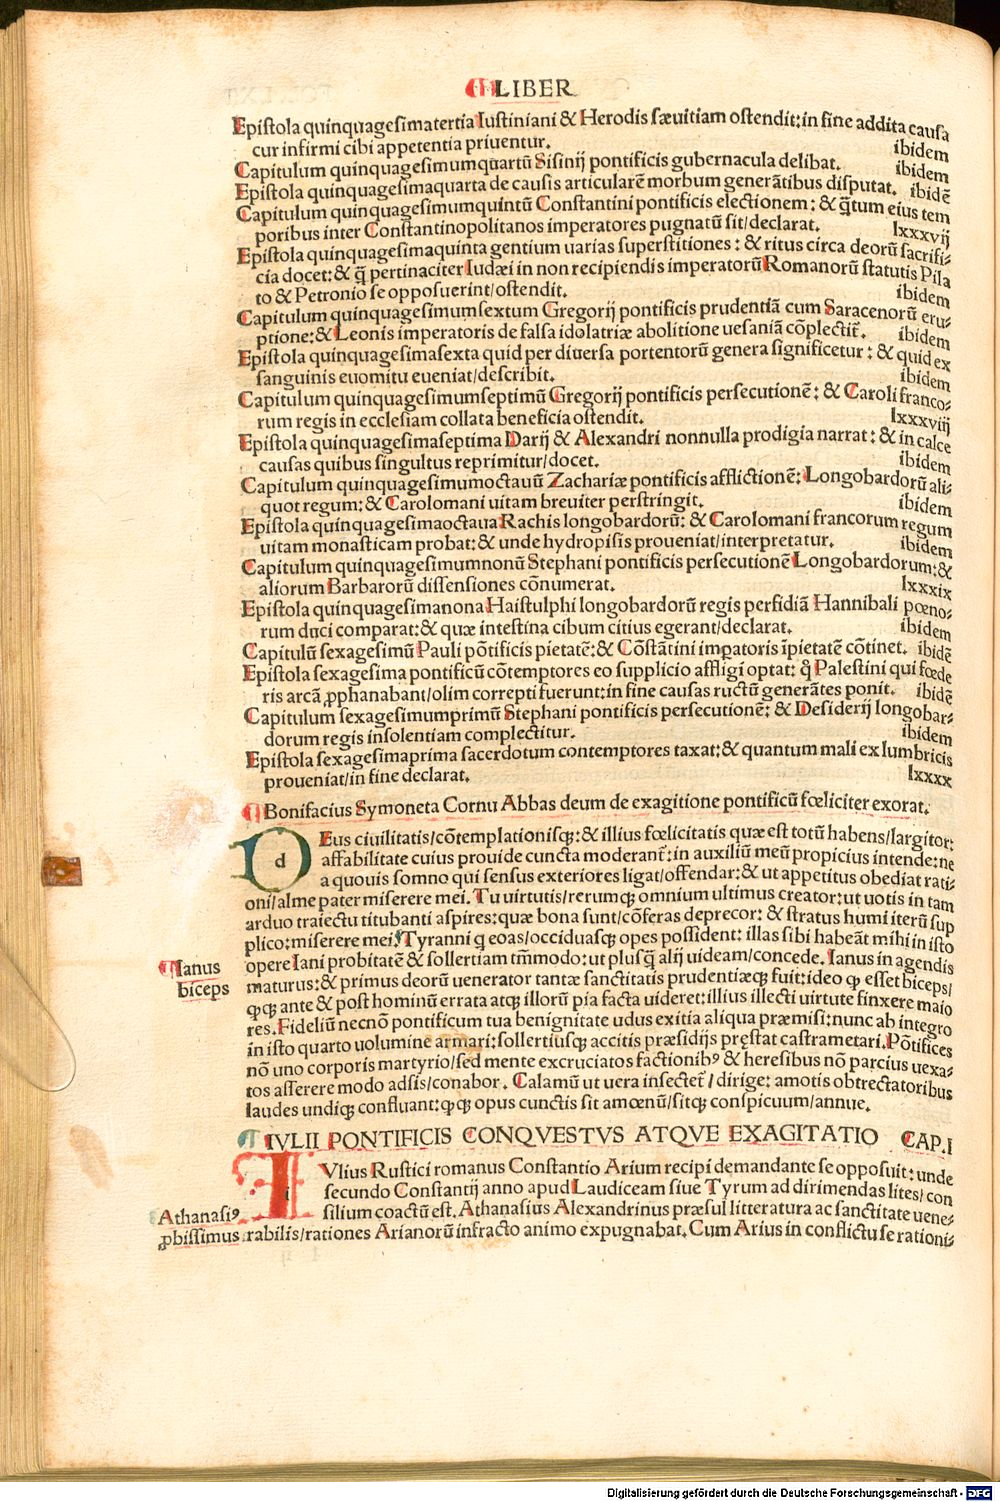 ¶LIBER
Epistola quinquagesimatertia Iustiniani & Herodis sæuitiam ostendit: in fine addita causa
cur infirmi cibi appetentia priuentur. ibidem
Capitulum quinquagesimumquartū Sisinij pontificis gubernacula delibat. ibidem
Epistola quinquagesimaquarta de causis articularē morbum generātibus disputat. ibidē
Capitulum quinquagesimumquintū Constantini pontificis electionem: & q̄tum eius tem
poribus inter Constantinopolitanos imperatores pugnatū sit/declarat. lxxxvij
Epistola quinquagesimaquinta gentium uarias superstitiones: & ritus circa deorū sacrifi⸗
cia docet: & q̄ pertinaciter Iudæi in non recipiendis imperatorū Romanorū statutis Pila
to & Petronio se opposuerint/ostendit. ibidem
Capitulum quinquagesimumsextum Gregorij pontificis prudentiā cum Saracenorū eru⸗
ptione: & Leonis imperatoris de falsa idolatriæ abolitione uesaniā cōplectit̄. ibidem
Epistola quinquagesimasexta quid per diuersa portentorū genera significetur: & quid ex
sanguinis euomitu eueniat/describit. ibidem
Capitulum quinquagesimumseptimū Gregorij pontificis persecutionē: & Caroli franco⸗
rum regis in ecclesiam collata beneficia ostendit. lxxxviij
Epistola quinquagesimaseptima Darij & Alexandri nonnulla prodigia narrat: & in calce
causas quibus singultus reprimitur/docet. ibidem
Capitulum quinquagesimumoctauū Zachariæ pontificis afflictionē: Longobardorū ali⸗
quot regum: & Carolomani uitam breuiter perstringit. ibidem
Epistola quinquagesimaoctaua Rachis longobardorū: & Carolomani francorum regum
uitam monasticam probat: & unde hydropisis proueniat/interpretatur. ibidem
Capitulum quinquagesimumnonū Stephani pontificis persecutionē Longobardorum: &
aliorum Barbarorū dissensiones cōnumerat. lxxxix
Epistola quinquagesimanona Haistulphi longobardorū regis perfidiā Hannibali pœno⸗
rum duci comparat: & quæ intestina cibum citius egerant/declarat. ibidem
Capitulū sexagesimū Pauli pōtificis pietatē: & Cōstātini imꝑatoris īpietatē cōtinet. ibidē
Epistola sexagesima pontificū cōtemptores eo supplicio affligi optat: ꝙ Palestini qui fœde
ris arcā ꝓphanabant/olim correpti fuerunt: in fine causas ructū generātes ponit. ibidē
Capitulum sexagesimumprimū Stephani pontificis persecutionē: & Desiderij longobar⸗
dorum regis insolentiam complectitur. ibidem
Epistola sexagesimaprima sacerdotum contemptores taxat: & quantum mali ex lumbricis
proueniat/in fine declarat. lxxxx
¶Bonifacius Symoneta Cornu Abbas deum de exagitione pontificū fœliciter exorat.
d
DEus ciuilitatis/cōtemplationisqꝫ: & illius fœlicitatis quæ est totū habens/largitor:
affabilitate cuius prouide cuncta moderant̄: in auxiliū meū propicius intende: ne
a quouis somno qui sensus exteriores ligat/offendar: & ut appetitus obediat rati⸗
oni/alme pater miserere mei. Tu uirtutis/rerumqꝫ omnium ultimus creator: ut uotis in tam
arduo traiectu titubanti aspires: quæ bona sunt/cōferas deprecor: & stratus humi iterū sup
plico: miserere mei. Tyranni q eoas/occiduasqꝫ opes possident: illas sibi habeāt mihi in isto
opere Iani probitatē & sollertiam tm̄modo: ut plusq̄ alij uideam/concede. Ianus in agendis
maturus: & primus deorū uenerator tantæ sanctitatis prudentiæqꝫ fuit: ideo ꝙ esset biceps/
ꝙqꝫ ante & post hominū errata atqꝫ illorū pia facta uideret: illius illecti uirtute finxere maio
res. Fideliū necnō pontificum tua benignitate udus exitia aliqua præmisi: nunc ab integro
in isto quarto uolumine armari: sollertiusqꝫ accitis præsidijs pręstat castrametari. Pōtifices
nō uno corporis martyrio/sed mente excruciatos factionibꝰ & heresibus nō parcius uexa⸗
tos asserere modo adsis/conabor. Calamū ut uera insectet̄/dirige: amotis obtrectatoribus
laudes undiqꝫ confluant: ꝙqꝫ opus cunctis sit amœnū/sitqꝫ conspicuum/annue.
¶Ianus
biceps
¶IVLII PONTIFICIS CONQVESTVS ATQVE EXAGITATIO CAP.I
i
IVlius Rustici romanus Constantio Arium recipi demandante se opposuit: unde
secundo Constantij anno apud Laudiceam siue Tyrum ad dirimendas lites/con
silium coactū est. Athanasius Alexandrinus præsul litteratura ac sanctitate uene⸗
rabilis/rationes Arianorū infracto animo expugnabat. Cum Arius in conflictu se rationi⸗
Athanasiꝰ
ꝓbissimus
Digitalisierung gefördert durch die Deutsche Forschungsgemeinschaft - DFG